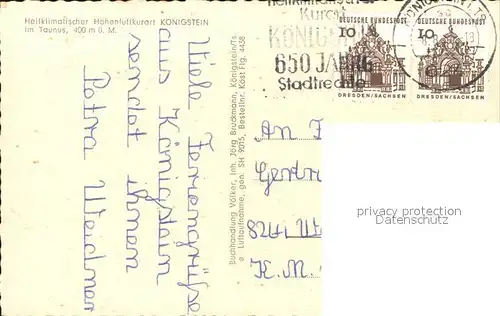 Heilklimatischer Höhenluftkurort KÖNIGSTEIN
im Taunus, 400 m ü. M.
Viele Feriengrüße
aus Königstein
sendet ihnen
Petra Weidner
Buchhandlung Völker, Inh. Jörg Bruckmann, Königstein/Ts
e Luftaufnahme, gen. SH 9015, Bestellnr. Köst Ftg. 4438
Heilklimatischer
Kurort
KÖNIG
650 JAHRE
Stadtrechte
KÖNIGSTEIN I TS
DEUTSCHE BUNDESPOST
10
DRESDEN/SACHSEN
DEUTSCHE BUNDESPOST
10
DRESDEN/SACHSEN
An
Gertr
8241
K. M.
privacy protection
Datenschutz